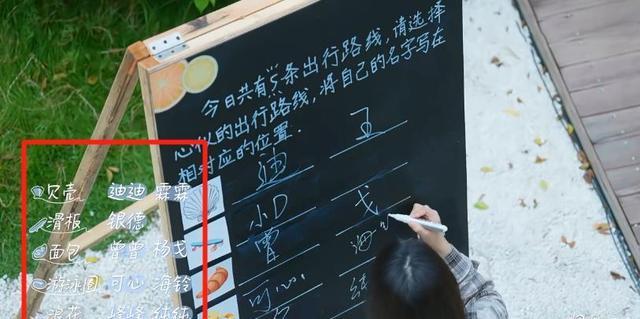 今日共有5条出行路线,请选择
心仪的出行路线,将自己的名字写在
相对应的位置.
迪 王
小D 戈
曾 海
可心 纯
贝壳 迪迪 霖霖
滑板 银德
面包 曾曾 杨戈
游泳圈 可心 海铃
浪花 峰峰 纯纯